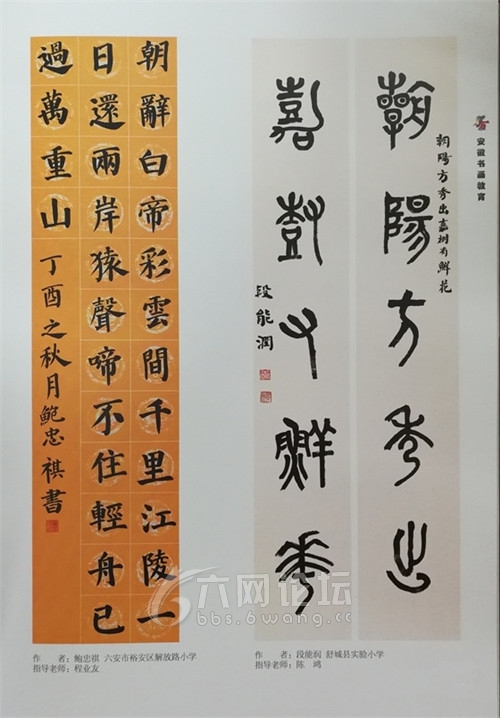 安徽书画教育
朝陽方秀出
嘉樹有鮮華
朝陽方秀出嘉树有鮮花
段能潤
朝辭白帝彩雲間千里江陵一
日還兩岸猿聲啼不住輕舟已
過萬重山
丁酉之秋月鲍忠祺書
作 者：鲍忠祺 六安市裕安区解放路小学
指导老师：程业友
作 者：段能润 舒城县实验小学
指导老师：陈 鸿
六网论坛
bbs.6wang.cc